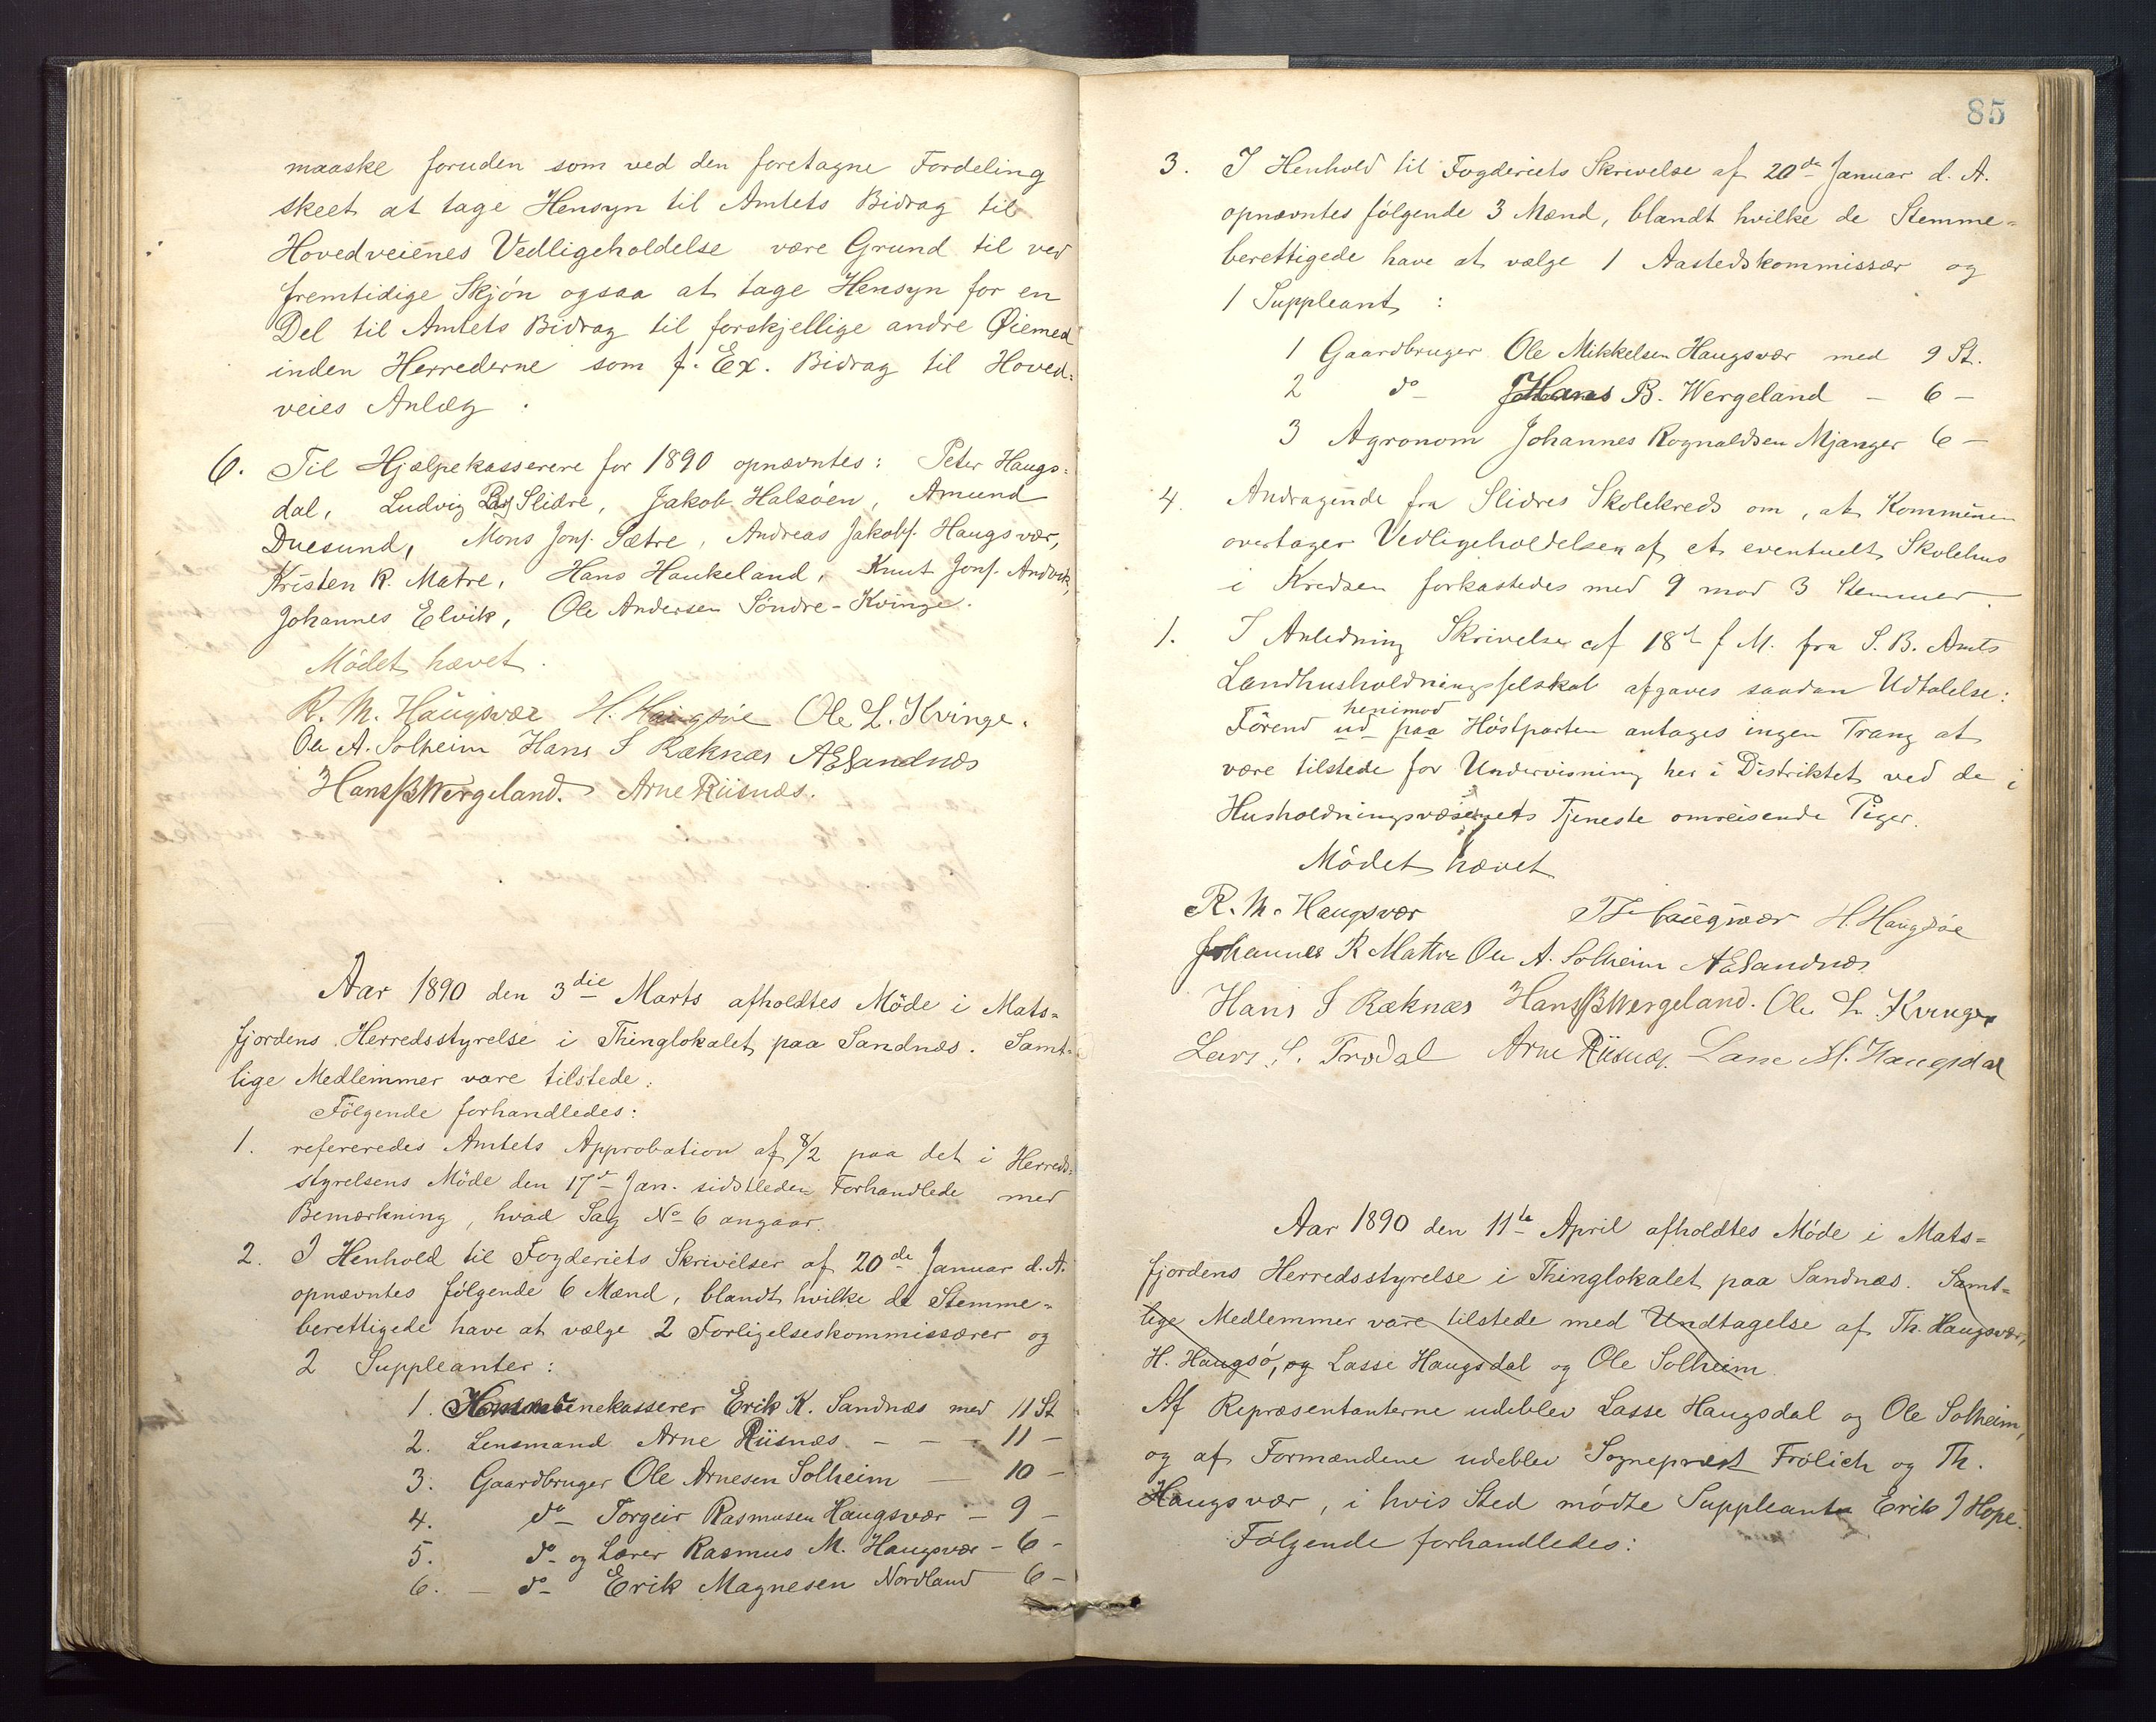 maaske foruden som ved den foretagne Fordeling
skeet at tage Hensyn til Amtets Bidrag til
Hovedveienes Vedligeholdelse være Grund til ved
fremtidige Skjön ogsaa at tage Hensyn for en
Del til Amtets Bidrag til forskjellige andre Øiemed
inden Herrederne som f. Ex. Bidrag til Hoved-
veies Anlæg.
6. Til Hjælpekasserere for 1890 opnævntes: Peter Haugs-
dal, Ludvig Slidre, Jakob Halsöen, Amund
Duesund, Mons Jons. Sætre, Andreas Jakobs. Haugsvær,
Kristen R. Matre, Hans Haukeland, Knut Jons. Andvik,
Johannes Elvik, Ole Andersen Söndre-Kvinge.
Mödet hævet.
R. M. Haugsvær H. Haugsöe Ole L. Kvinge.
Ole A. Solheim Hans S Ræknæs AESandnæs
Hans B Wergeland. Arne Riisnæs.
Aar 1890 den 3die Marts afholdtes Möde i Mats-
fjordens Herredsstyrelse i Thinglokalet paa Sandnæs. Samt-
lige Medlemmer vare tilstede:
Fölgende forhandledes:
1. refereredes Amtets Approbation af 8/2 paa det i Herreds-
styrelsens Möde den 17de Jan. sidstleden Forhandlede med
Bemærkning, hvad Sag No 6 angaar.
2. I Henhold til Fogderiets Skrivelser af 20de Januar d. A.
opnævntes fölgende 6 Mænd, blandt hvilke de Stemme-
berettigede have at vælge 2 Forligelseskommissærer og
2 Suppleanter:
1. Kommunekasserer Erik K. Sandnæs med 11 St
2. Lensmand Arne Riisnæs - - - 11 -
3. Gaardbruger Ole Arnesen Solheim - 10 -
4. do Torgeir Rasmusen Haugsvær - 9 -
5. do og Lærer Rasmus M. Haugsvær - 6 -
6. - do Erik Magnesen Nordland 6 -
85
3. I Henhold til Fogderiets Skrivelse af 20de Januar d. A.
opnævntes fölgende 3 Mænd, blandt hvilke de Stemme-
berettigede have at vælge 1 Aastedskommissær og
1 Suppleant:
1 Gaardbruger Ole Mikkelsen Haugsvær med 9 St.
2 do Hans B. Wergeland - 6 -
3 Agronom Johannes Rognaldsen Mjanger 6 -
4. Andragende fra Slidres Skolekreds om, at Kommunen
overtager Vedligeholdelsen af et eventuelt Skolehus
i Kredsen forkastedes med 9 mod 3 Stemmer.
1. I Anledning Skrivelse af 18de f M. fra S. B. Amts
Landhusholdningsselskab afgaves saadan Udtalelse:
henimod
Förend ud paa Höstparten antages ingen Trang at
være tilstede for Undervisning her i Distriktet ved de i
Husholdningsvæsenets Tjeneste omreisende Piger.
Mödet hævet
R. M. Haugsvær Th Haugsvær H. Haugsöe
Johannes R Mattre Ole A. Solheim AESandnæs
Hans S Ræknæs Hans B Wergeland. Ole L. Kvinge
Lars S. Trodal Arne Riisnæs. Lasse M. Haugsdal
Aar 1890 den 11te April afholdtes Möde i Mats-
fjordens Herredsstyrelse i Thinglokalet paa Sandnæs. Samt-
lige Medlemmer vare tilstede med Undtagelse af Th. Haugsvær,
H. Haugsö, og Lasse Haugsdal og Ole Solheim.
Af Repræsentanterne udeblev Lasse Haugsdal og Ole Solheim,
og af Formændene udeblev Sogneprest Frölich og Th.
Haugsvær, i hvis Sted mödte Suppleant Erik J Hope.
Fölgende forhandledes: